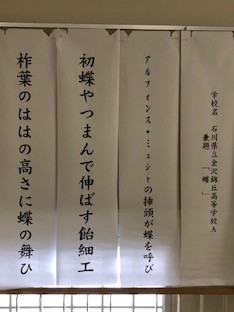 学校名 石川県立金沢錦丘高等学校A
兼題 「蝶」
アルフォンス・ミュシャの挿頭が蝶を呼び
初蝶やつまんで伸ばす飴細工
柞葉のははの高さに蝶の舞ひ